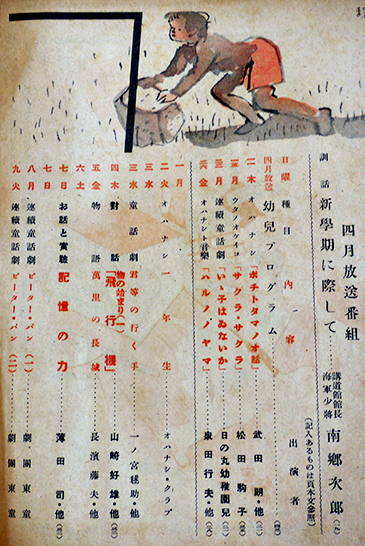 四月放送番組
訓話 新學期に際して……講道館館長 海軍少將 南郷次郎
(記入あるものは頁本文參照)
日曜 種目 内容 出演者
四月放送 幼兒プログラム
二木 オハナシ 「ポチトタマノオ話」……武田朗・他
三月 ウタノオケイコ 「サクラ・サクラ」……松田駒子
三月 連續童話劇 「いゝ子はゐないか」……日の丸幼稚園兒
六金 オハナシト音樂 「ハルノノヤマ」……泉田行夫・他
一月
二火 オハナシ 一年生……オハナシ・クラブ
三水
三水 童話劇 君等の行く手……一ノ宮毬助・他
四木 對話 物の始まり(一)「飛行機」……山崎好雄・他
五金 物語 萬里の長城……長濱藤夫・他
六土
七日
七日 お話と實驗 記憶の力……薄田司・他
八月 連續童話劇 ピーター・パン(一)……劇團東童
九火 連續童話劇 ピーター・パン(二)……劇團東童